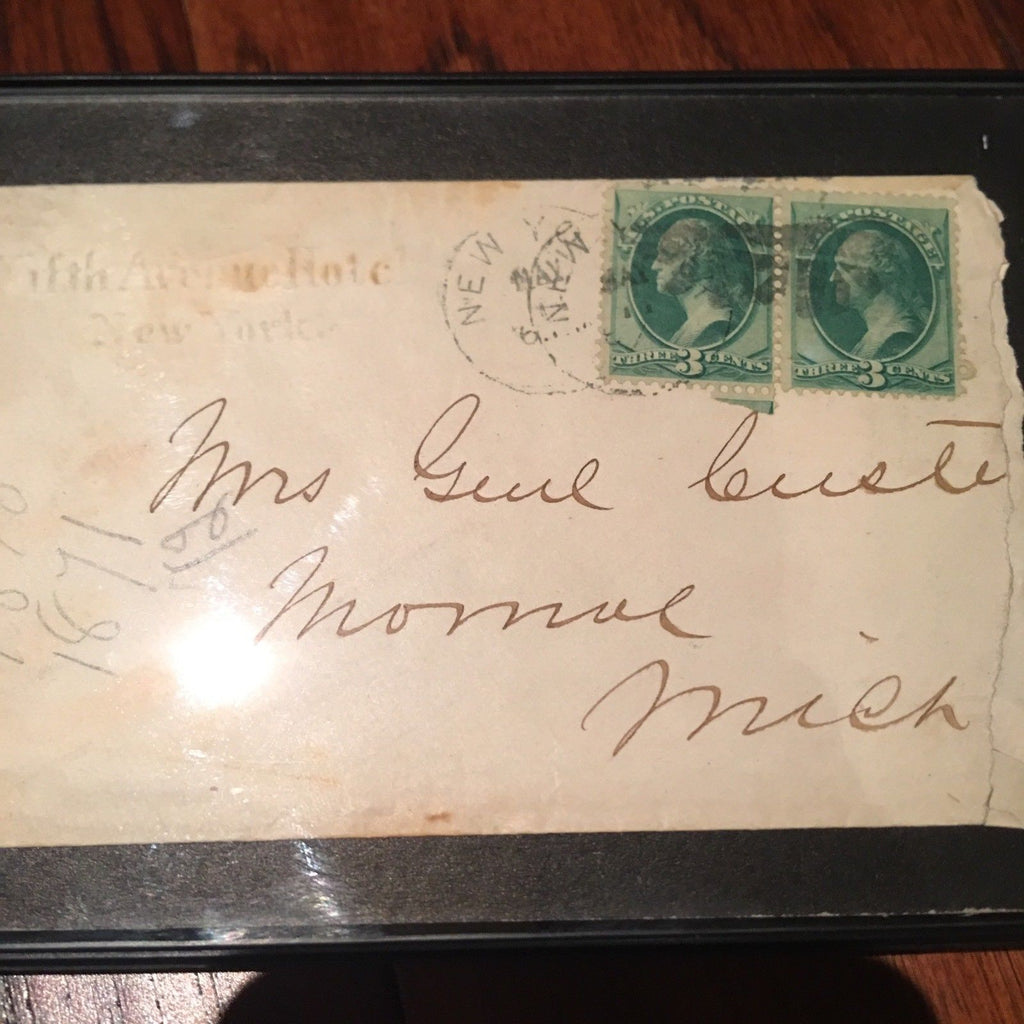 Fifth Avenue Hote
New York.
NEW
NEW
U.S. POSTAGE
U.S. POSTAGE
THREE 3 CENTS
THREE 3 CENTS
Mrs Genl Custe
Monroe
Mich
1871